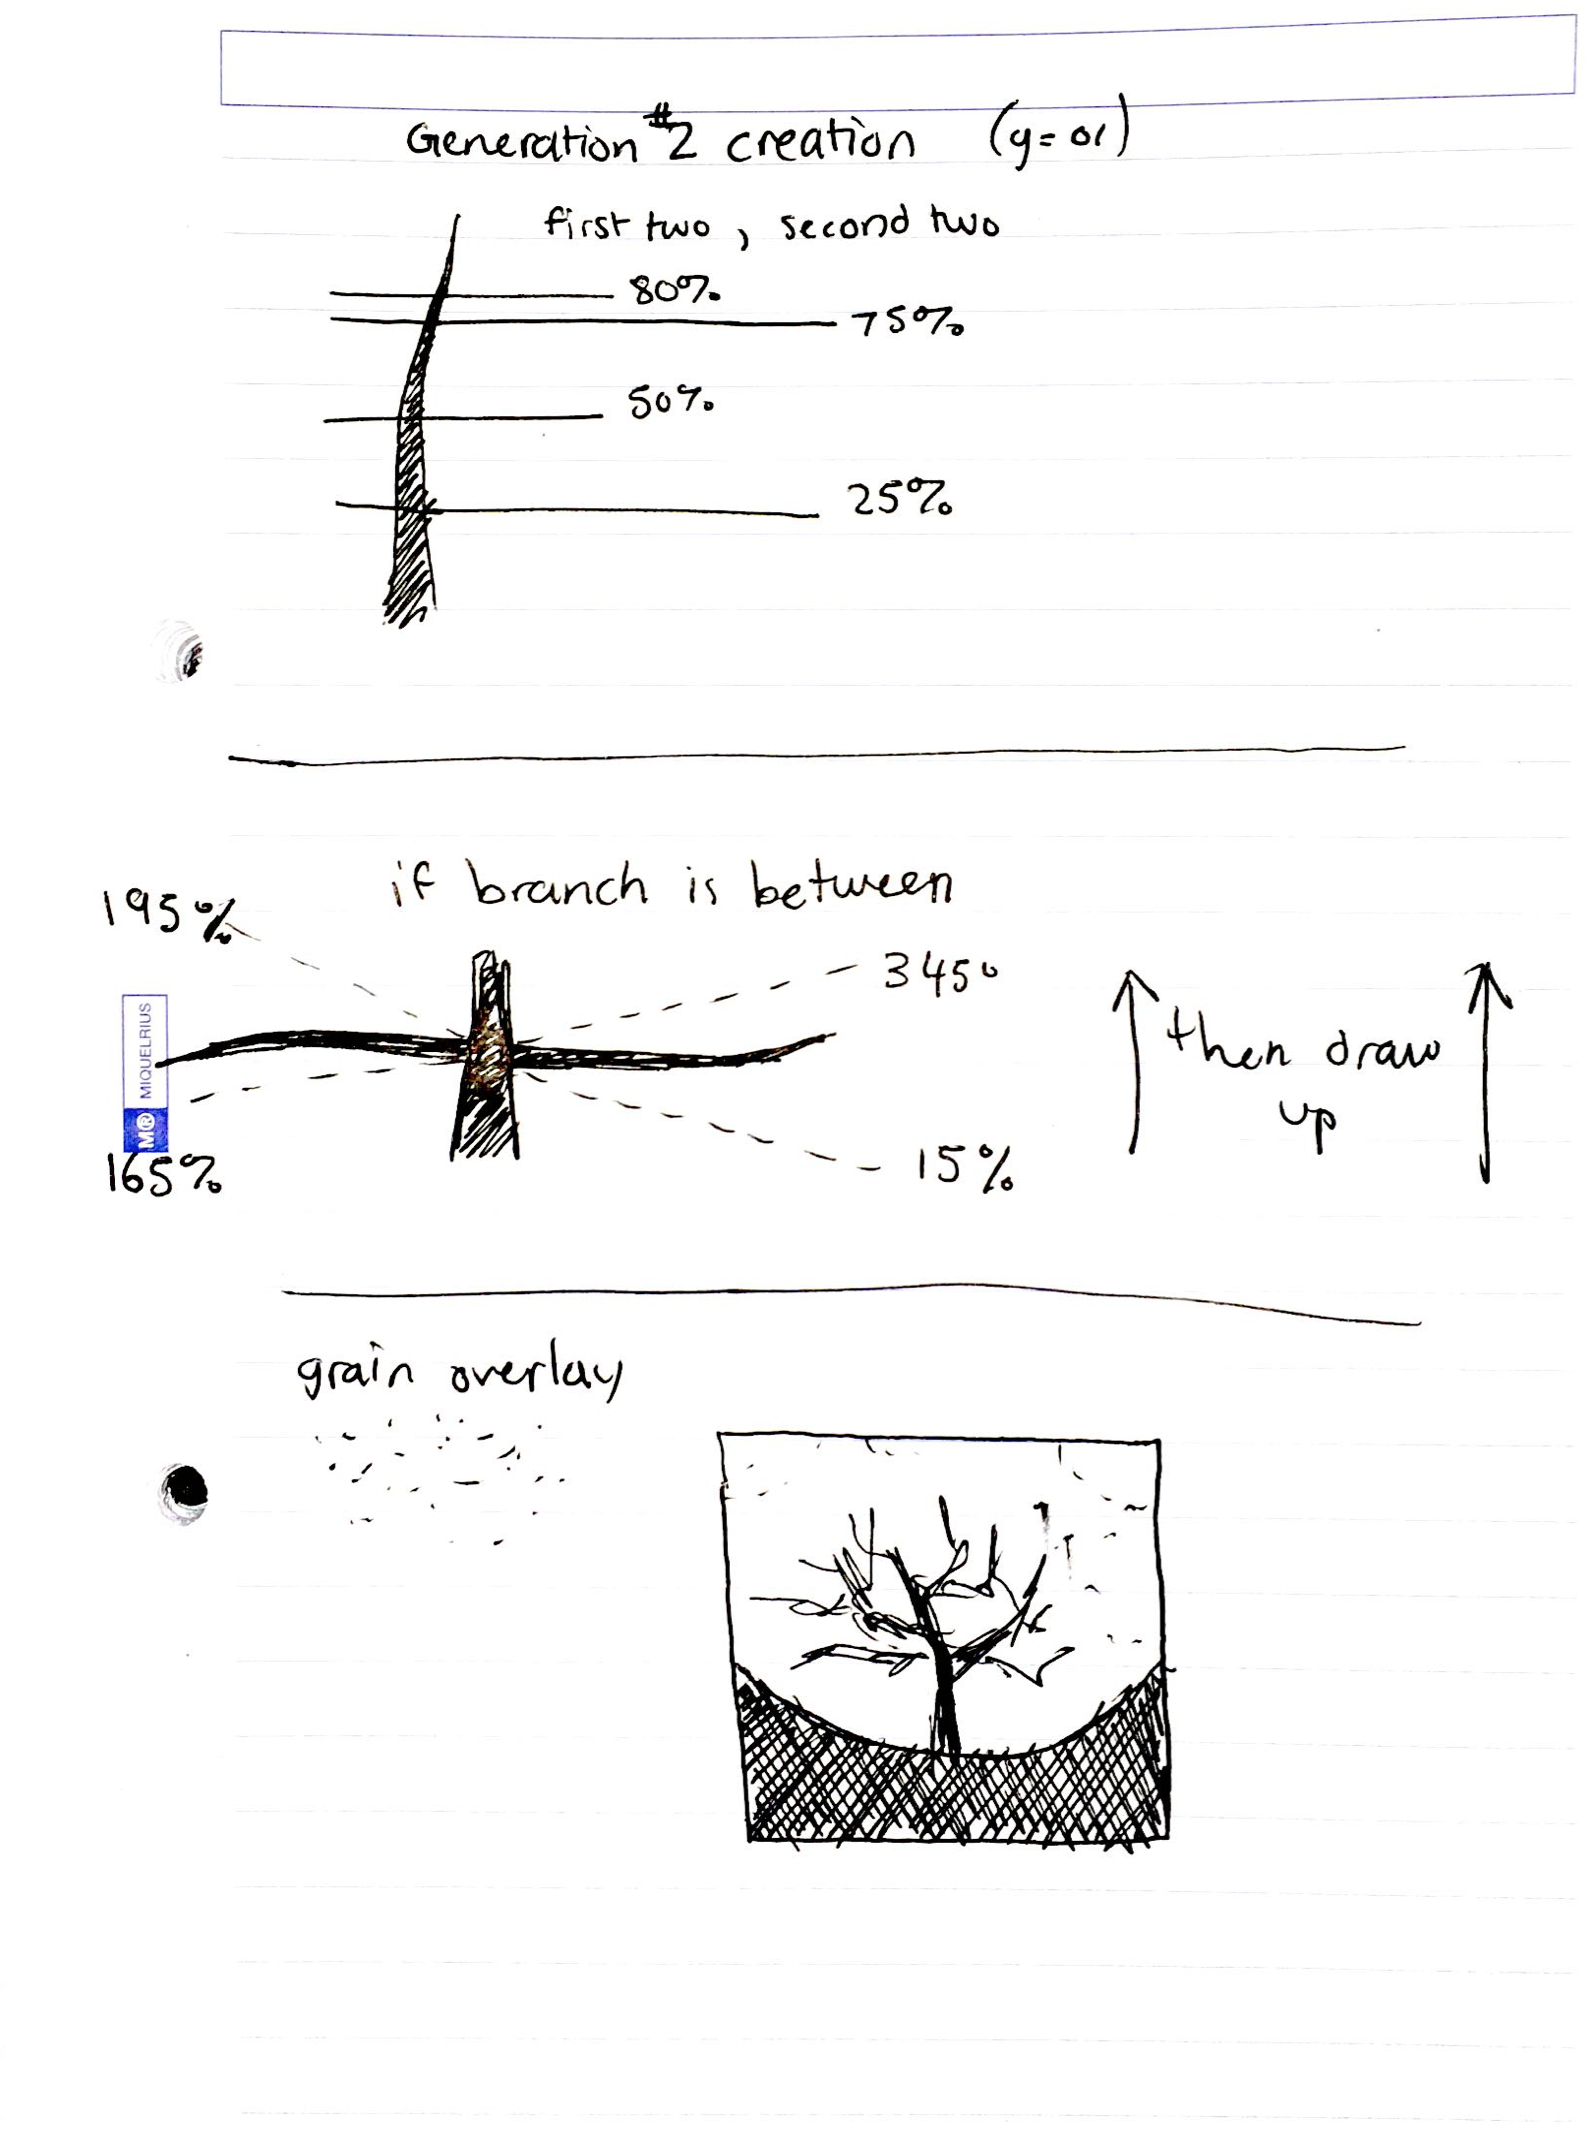 Generation #2 creation (y=01)
first two, second two
80%
75%
50%
25%
if branch is between
195%
345°
then draw
up
MIQUELRIUS
M®
165%
15%
grain overlay